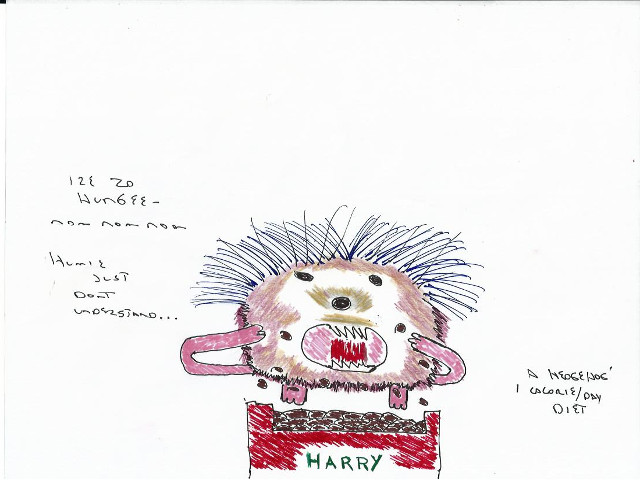 IZE ZO
HUNGEE-
nom nom nom
HUMIE
JUST
DONT
UNDERSTAND...
A HEDGEHOG'
1 CALORIE/DAY
DIET
HARRY